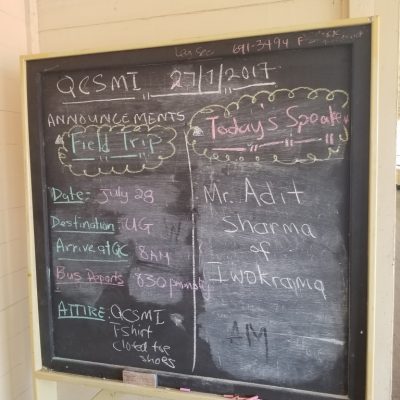 691-3494
QCSMI 27/7/2017
ANNOUNCEMENTS
Field Trip
Date: July 28
Destination: UG
Arrive at QC 8AM
Bus Departs 830 promptly
ATTIRE: QCSMI
T-shirt
Closed toe
shoes
Today's Speaker
Mr. Adit
Sharma
of
Iwokrama
AM